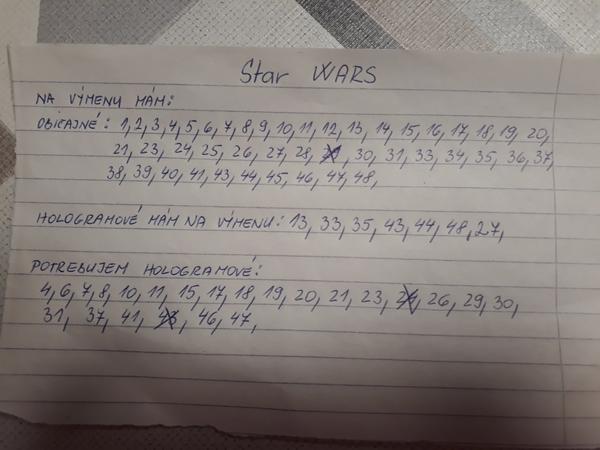 Star WARS
NA VÝMENU MÁM:
OBIČAJNÉ: 1, 2, 3, 4, 5, 6, 7, 8, 9, 10, 11, 12, 13, 14, 15, 16, 17, 18, 19, 20,
21, 23, 24, 25, 26, 27, 28, 30, 31, 33, 34, 35, 36, 37,
38, 39, 40, 41, 43, 44, 45, 46, 47, 48,
HOLOGRAMOVÉ MÁM NA VÝMENU: 13, 33, 35, 43, 44, 48, 27,
POTREBUJEM HOLOGRAMOVÉ:
4, 6, 7, 8, 10, 11, 15, 17, 18, 19, 20, 21, 23, 26, 29, 30,
31, 37, 41, 46, 47,